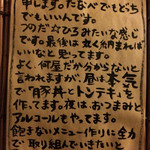 申します。たなべでもどち
でもいいんです。
つのだ☆ひろみたいな感じ
です。最後は丸く納まれば
いいなと思ってます。
よく、何屋だか分からないと
言われますが、昼は本気
で"豚丼とトンテキ"も
作ってます。夜は、おつまみと
アルコールもやってます。
飽きないメニュー作りに全力
で取り組んでいきたいと